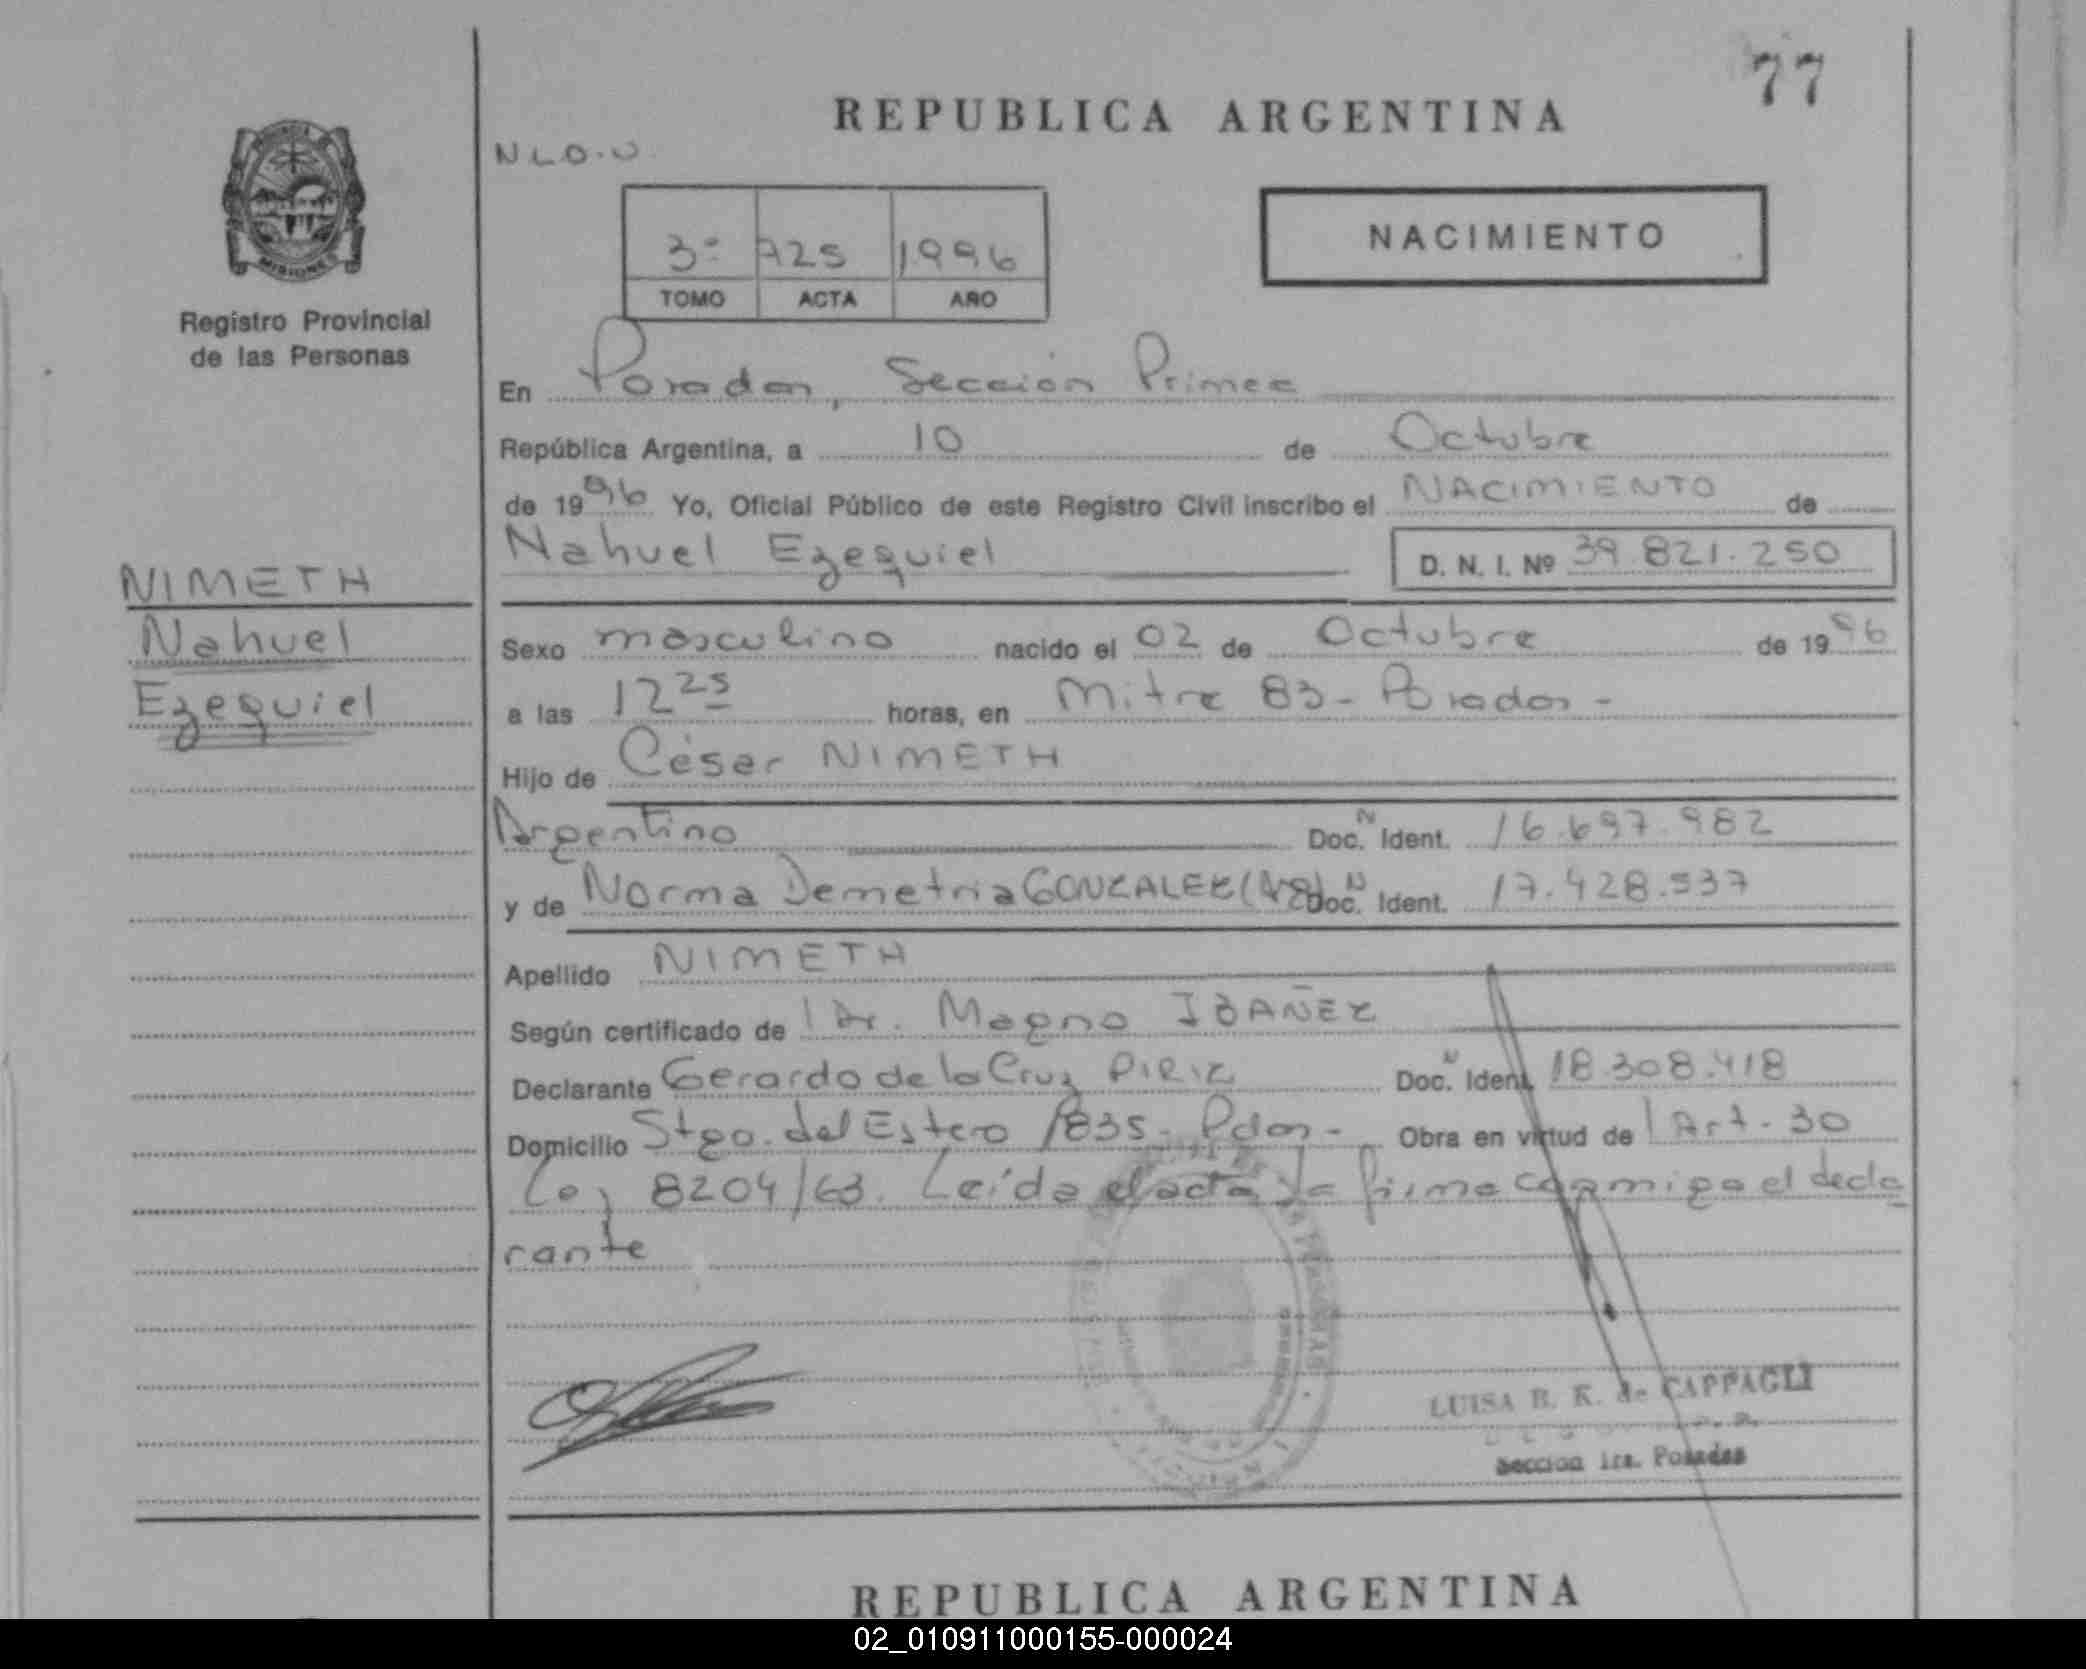 77
REPUBLICA ARGENTINA
PROVINCIA
MISIONES
Registro Provincial
de las Personas
N L O . U
3º 725 1996
TOMO ACTA AÑO
NACIMIENTO
En Posadas, Sección Primera
República Argentina, a 10 de Octubre
de 1996 Yo, Oficial Público de este Registro Civil inscribo el NACIMIENTO de
Nahuel Ezequiel D. N. I. Nº 39.821.250
NIMETH
Nahuel
Ezequiel
Sexo masculino nacido el 02 de Octubre de 1996
a las 12 25 horas, en Mitre 83 - Posadas -
Hijo de César NIMETH
Argentino Doc. N Ident. 16.697.982
y de Norma Demetria GONZALEZ (Arg) Doc. N Ident. 17.428.537
Apellido NIMETH
Según certificado de l Dr. Magno IBAÑEZ
Declarante Gerardo de la Cruz PIRIZ Doc. N Ident. 18.308.418
Domicilio Stgo. del Estero 1835 - Pdas - Obra en virtud de l Art. 30
Ley 8204/63. Leída el acta la firma conmigo el decla
rante
LUISA B. K. de CAPPAGLI
Sección 1ra. Posadas
REPUBLICA ARGENTINA
02_010911000155-000024